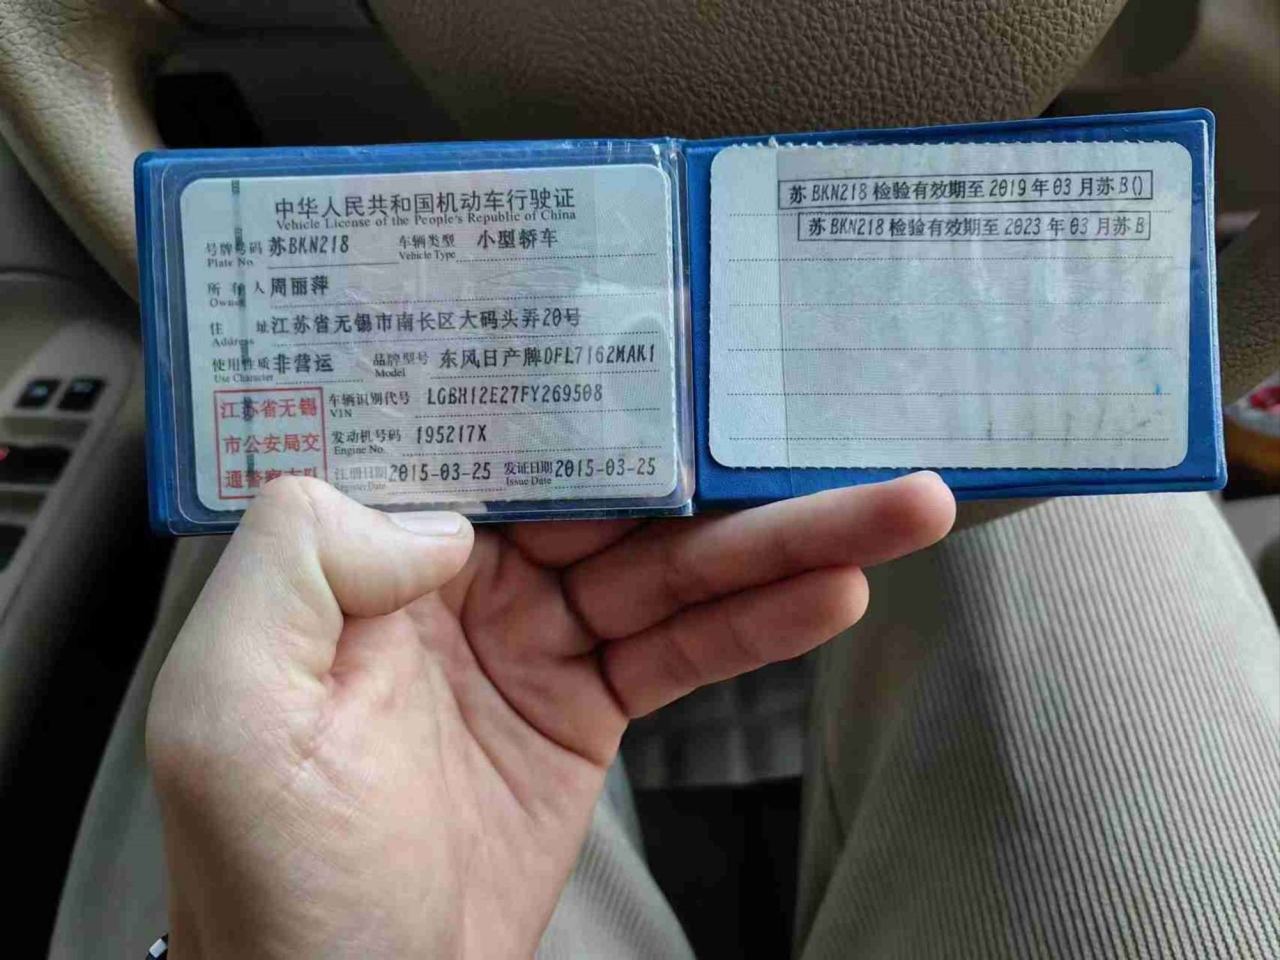 中华人民共和国机动车行驶证
Vehicle License of the People's Republic of China
号牌号码 苏BKN218 车辆类型 小型轿车
Plate No. Vehicle Type
所有人 周丽萍
Owner
住址 江苏省无锡市南长区大码头弄20号
Address
使用性质 非营运 品牌型号 东风日产牌DFL7162MAK1
Use Character Model
江苏省无锡
市公安局交
通警察支队
车辆识别代号 LGBH12E27FY269508
VIN
发动机号码 195217X
Engine No.
注册日期 2015-03-25 发证日期 2015-03-25
Register Date Issue Date
苏BKN218检验有效期至2019年03月苏B()
苏BKN218检验有效期至2023年03月苏B